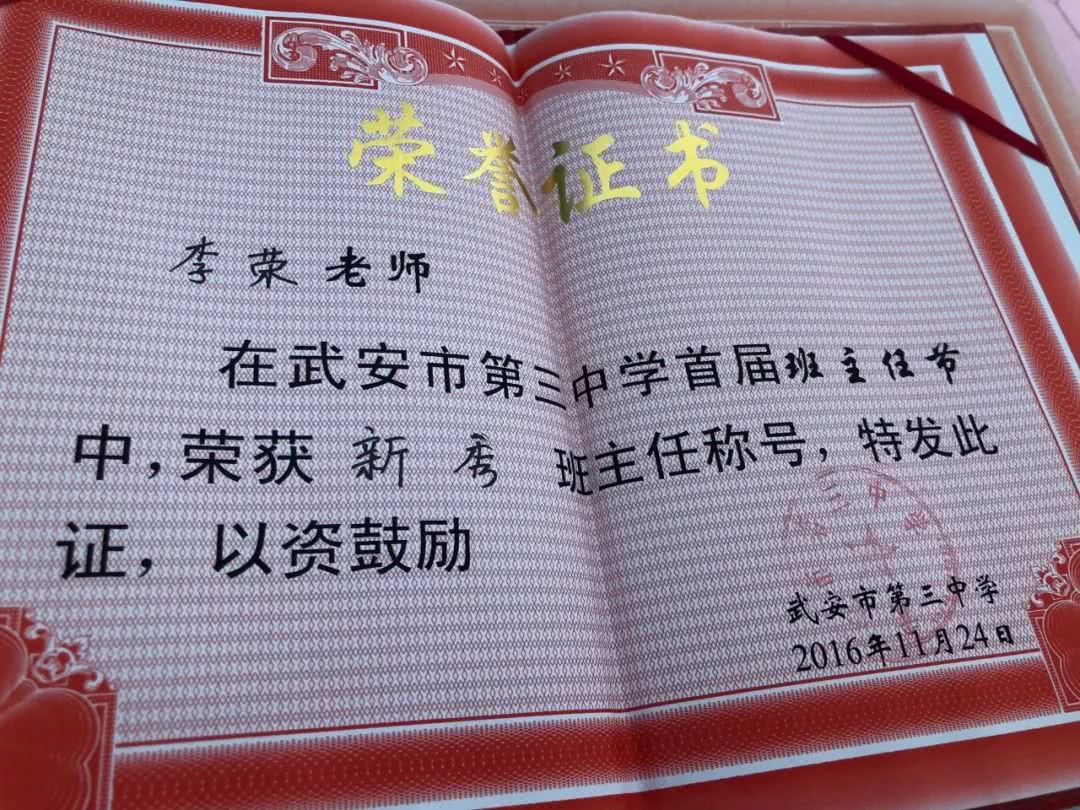 荣誉证书
李荣老师
在武安市第三中学首届班主任节
中,荣获 新秀 班主任称号,特发此
证,以资鼓励
武安市第三中学
2016年11月24日